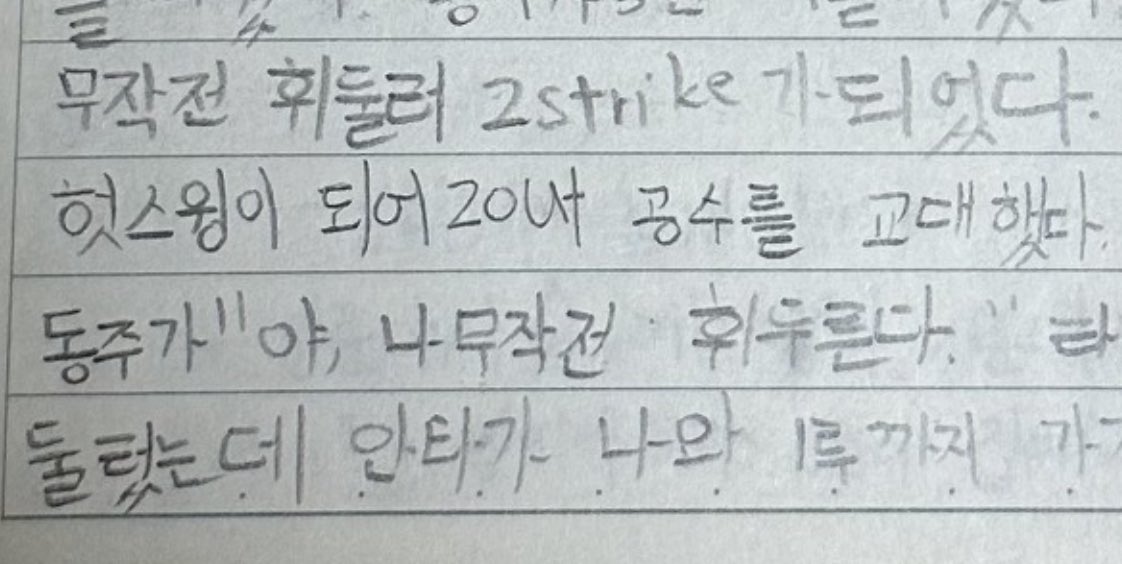 무작전 휘둘러 2strike가 되었다.
헛스윙이 되어 20UH 공수를 교대했다.
동주가 "야, 나 무작전 휘두른다." 라
둘렀는데 안타가 나와 1루까지